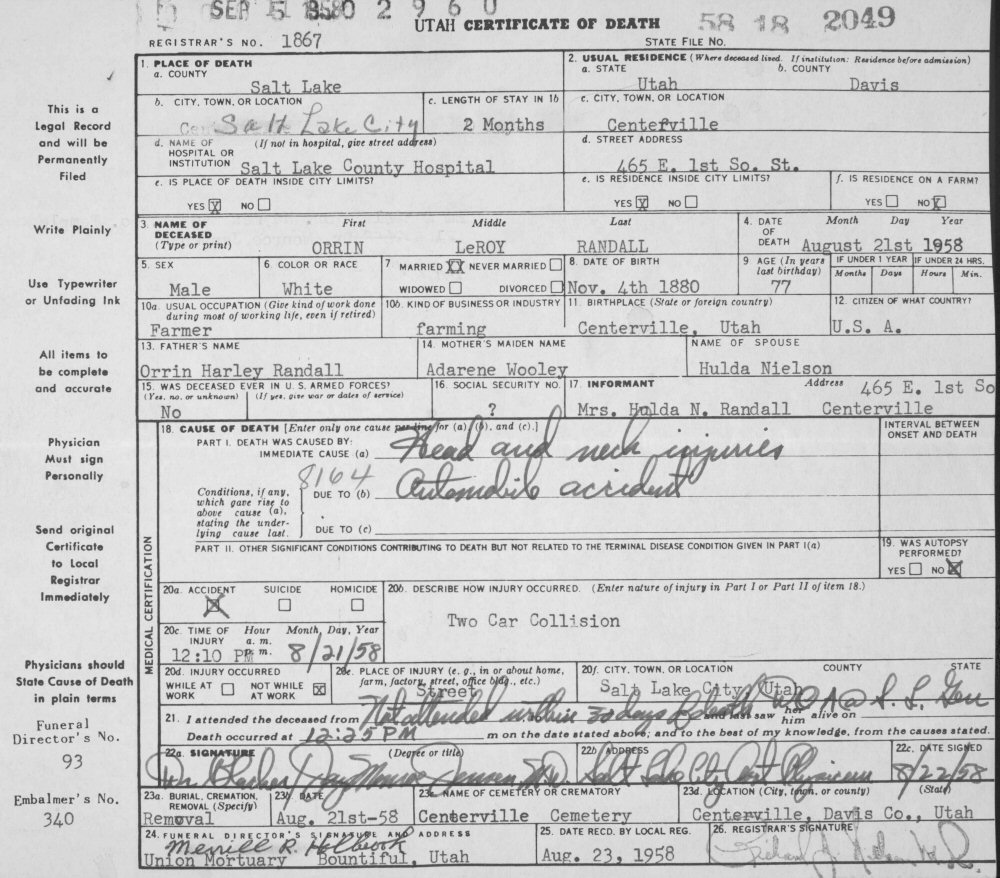 SEP 5 1958 0 2 9 6 0
UTAH CERTIFICATE OF DEATH
58 18 2049
REGISTRAR'S NO. 1867
STATE FILE NO.
1. PLACE OF DEATH
a. COUNTY
Salt Lake
2. USUAL RESIDENCE (Where deceased lived. If institution: Residence before admission)
a. STATE b. COUNTY
Utah Davis
b. CITY, TOWN, OR LOCATION
Salt Lake City
c. LENGTH OF STAY IN 1b
2 Months
c. CITY, TOWN, OR LOCATION
Centerville
d. NAME OF HOSPITAL OR INSTITUTION (If not in hospital, give street address)
Salt Lake County Hospital
d. STREET ADDRESS
465 E. 1st So. St.
e. IS PLACE OF DEATH INSIDE CITY LIMITS?
YES X NO
e. IS RESIDENCE INSIDE CITY LIMITS?
YES X NO
f. IS RESIDENCE ON A FARM?
YES NO X
3. NAME OF DECEASED (Type or print)
First Middle Last
ORRIN LeROY RANDALL
4. DATE OF DEATH
Month Day Year
August 21st 1958
5. SEX
Male
6. COLOR OR RACE
White
7 MARRIED XX NEVER MARRIED
WIDOWED DIVORCED
8. DATE OF BIRTH
Nov. 4th 1880
9 AGE (In years last birthday)
77
IF UNDER 1 YEAR
Months Days
IF UNDER 24 HRS.
Hours Min.
10a. USUAL OCCUPATION (Give kind of work done during most of working life, even if retired)
Farmer
10b. KIND OF BUSINESS OR INDUSTRY
farming
11. BIRTHPLACE (State or foreign country)
Centerville, Utah
12. CITIZEN OF WHAT COUNTRY?
U.S. A.
13. FATHER'S NAME
Orrin Harley Randall
14. MOTHER'S MAIDEN NAME
Adarene Wooley
NAME OF SPOUSE
Hulda Nielson
15. WAS DECEASED EVER IN U.S. ARMED FORCES?
(Yes, no, or unknown) (If yes, give war or dates of service)
No
16. SOCIAL SECURITY NO.
?
17. INFORMANT Address
Mrs. Hulda N. Randall 465 E. 1st So
Centerville
18. CAUSE OF DEATH [Enter only one cause per line for (a), (b), and (c).]
PART I. DEATH WAS CAUSED BY:
IMMEDIATE CAUSE (a) Head and neck injuries
INTERVAL BETWEEN ONSET AND DEATH
8164
Conditions, if any, which gave rise to above cause (a), stating the underlying cause last.
DUE TO (b) Automobile accident
DUE TO (c)
PART II. OTHER SIGNIFICANT CONDITIONS CONTRIBUTING TO DEATH BUT NOT RELATED TO THE TERMINAL DISEASE CONDITION GIVEN IN PART I(a)
19. WAS AUTOPSY PERFORMED?
YES NO X
MEDICAL CERTIFICATION
20a. ACCIDENT SUICIDE HOMICIDE
X
20b. DESCRIBE HOW INJURY OCCURRED. (Enter nature of injury in Part I or Part II of item 18.)
Two Car Collision
20c. TIME OF INJURY Hour a. m. p. m. Month, Day, Year
12:10 PM 8/21/58
20d. INJURY OCCURRED
WHILE AT WORK NOT WHILE AT WORK X
20e. PLACE OF INJURY (e. g., in or about home, farm, factory, street, office bldg., etc.)
Street
20f. CITY, TOWN, OR LOCATION COUNTY STATE
Salt Lake City, Utah
21. I attended the deceased from Not attended within 30 days of death and last saw her him alive on
Death occurred at 12:25 PM m on the date stated above; and to the best of my knowledge, from the causes stated.
22a. SIGNATURE (Degree or title)
22b ADDRESS
Salt Lake City
22c. DATE SIGNED
8/22/58
23a. BURIAL, CREMATION, REMOVAL (Specify)
Removal
23b. DATE
Aug. 21st-58
23c. NAME OF CEMETERY OR CREMATORY
Centerville Cemetery
23d. LOCATION (City, town, or county) (State)
Centerville, Davis Co., Utah
24. FUNERAL DIRECTOR'S SIGNATURE AND ADDRESS
Merrill R. Holbrook
Union Mortuary Bountiful, Utah
25. DATE RECD. BY LOCAL REG.
Aug. 23, 1958
26. REGISTRAR'S SIGNATURE
This is a
Legal Record
and will be
Permanently
Filed
Write Plainly
Use Typewriter
or Unfading Ink
All items to
be complete
and accurate
Physician
Must sign
Personally
Send original
Certificate
to Local
Registrar
Immediately
Physicians should
State Cause of Death
in plain terms
Funeral
Director's No.
93
Embalmer's No.
340